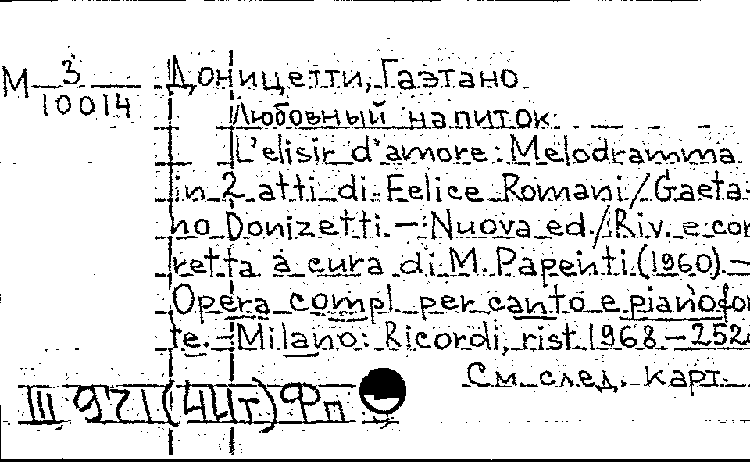 М 3/10014 Доницетти, Гаэтано
Любовный напиток.
L'elisir d'amore: Melodramma
in 2 atti di Felice Romani/Gaeta-
no Donizetti. – Nuova ed./Riv. e cor
retta a cura di M. Parenti (1960) –
Opera compl. per canto e pianofor
te. – Milano: Ricordi, rist. 1968 – 252
См. след. карт.
III 971 (4Ит) Фп